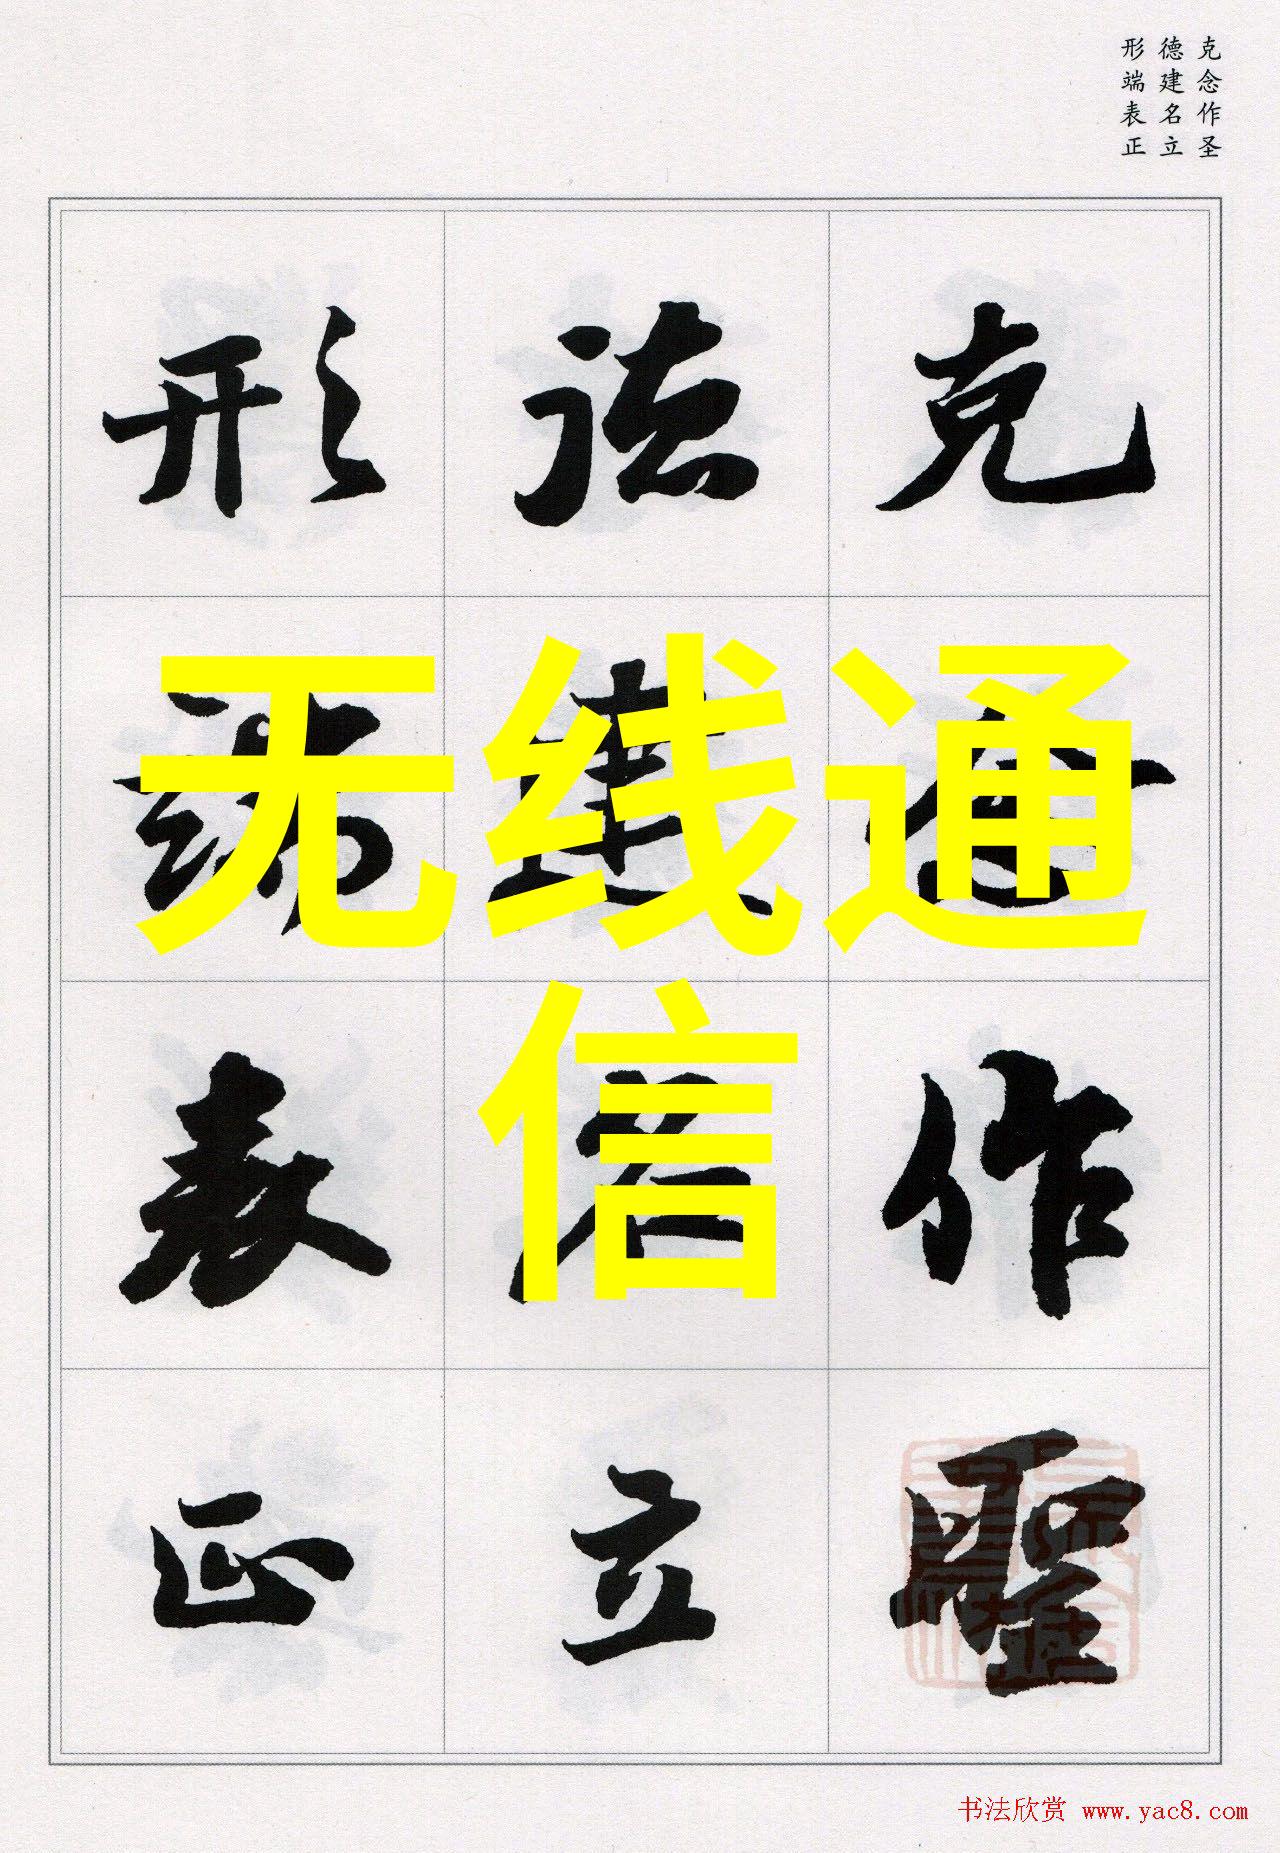 克念作圣
德建名立
形端表正
克念作聖
德建名立
形端表正
无线通
信
书法欣赏 www.yac8.com